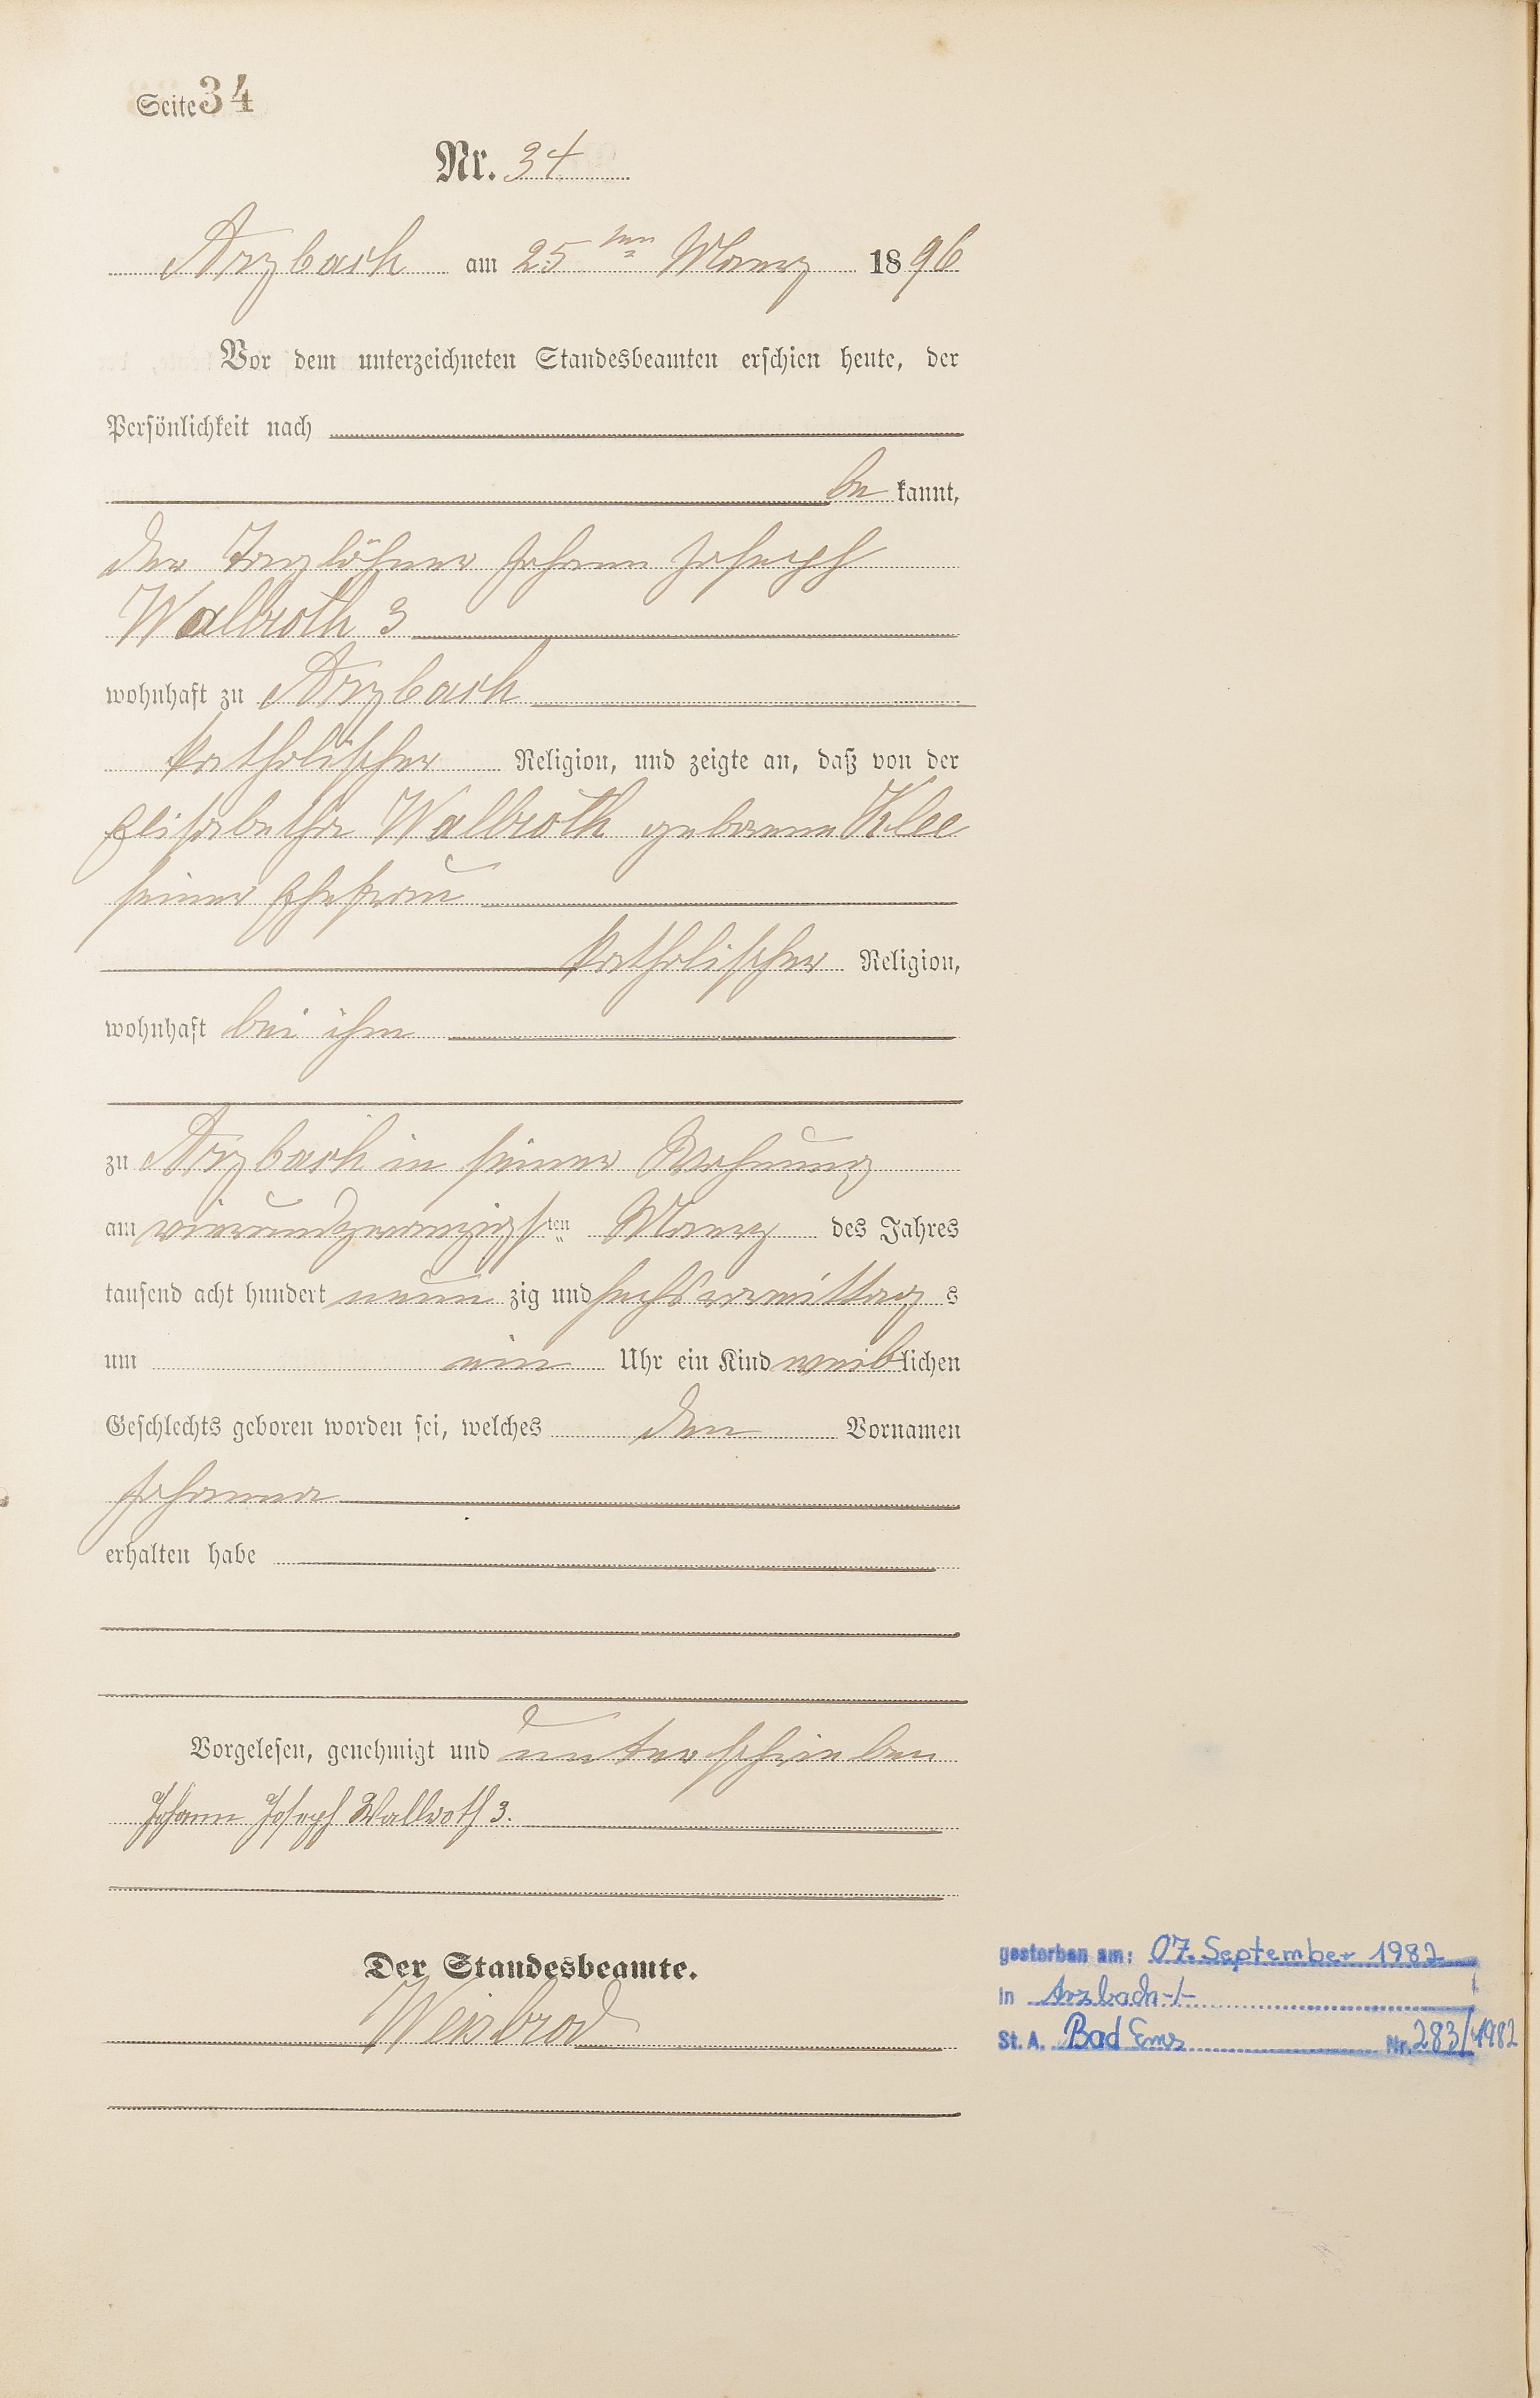 Seite 34
Nr. 34
Arzbach am 25ten Maerz 1896
Vor dem unterzeichneten Standesbeamten erschien heute, der
Persönlichkeit nach
be kannt,
der Taglöhner Johann Joseph
Walbroth 3
wohnhaft zu Arzbach
katholischer Religion, und zeigte an, daß von der
Elisabetha Walbroth geborene Klee
seiner Ehefrau
katholischer Religion,
wohnhaft bei ihm
zu Arzbach in seiner Wohnung
am vierundzwanzigsten Maerz des Jahres
tausend acht hundert neun zig und sechs vormittag s
um ein Uhr ein Kind weiblichen
Geschlechts geboren worden sei, welches den Vornamen
Johanna
erhalten habe
Vorgelesen, genehmigt und unterschrieben
Johann Joseph Wallroth 3.
Der Standesbeamte.
Weisbrod
gestorben am: 07. September 1982
in Arzbach -/-
St. A. Bad Ems Nr. 283/1982